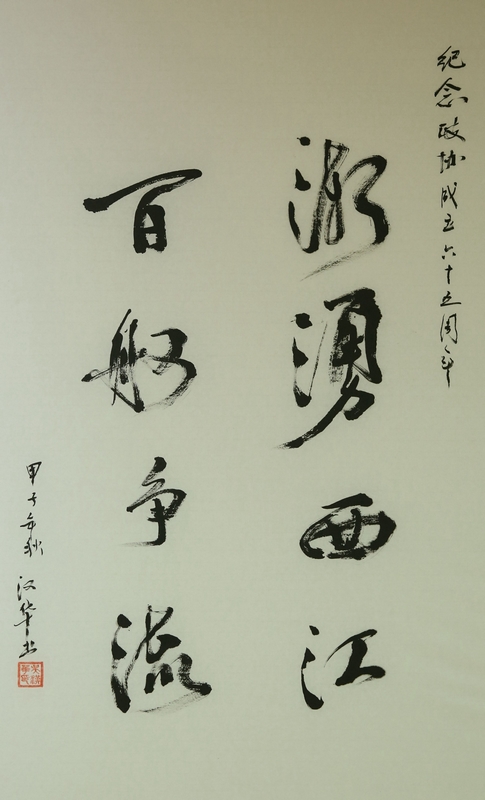 纪念政协成立六十五周年
潮湧西江
百舸争流
甲午年秋 汉华书